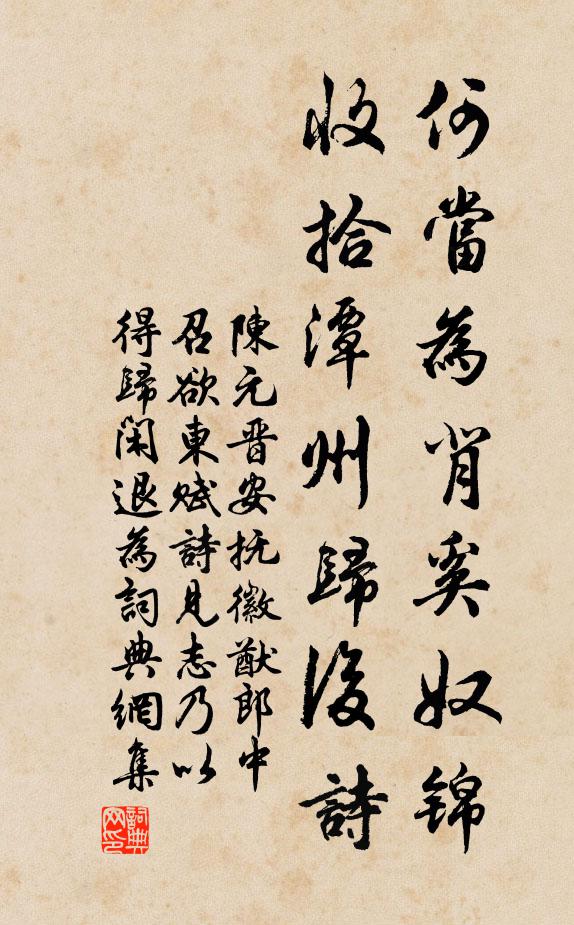 何當為背奚奴錦
收拾潭州歸後詩
陳元晋安抚徽猷郎中
召欲東赋詩見志乃以
得歸闲退為詞典網集
詞典網印